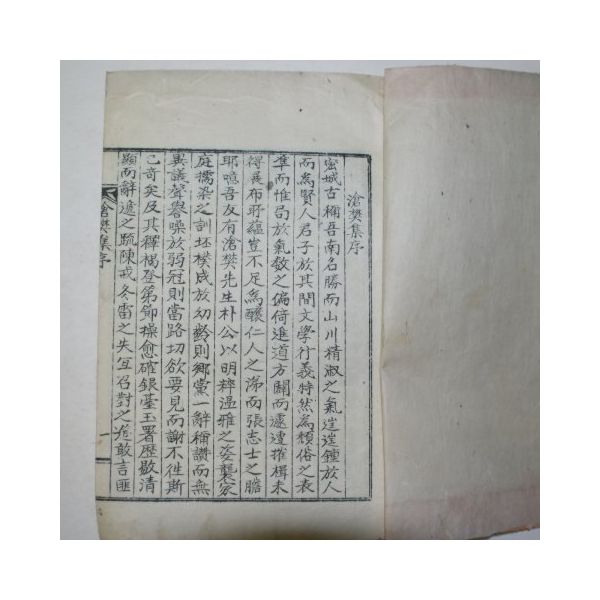 滄樊集序
密城古稱吾南名勝而山川精淑之氣逞逞鍾放人
而爲賢人君子放其間文學行義特然爲頹俗之表
準而惟局放氣数之偏倚進道方闢而遽遽摧楫未
得展布所蘊豈不足爲釀仁人之涕而張志士之膽
耶噫吾友有滄樊先生朴公以明粹温雅之姿襲家
庭擩染之訓坯樸成放幼齡則鄉黨一辭稱讚而無
異議聲譽噪放弱冠則當路切欲要見而謝不徃斯
已奇矣及其釋褐登第節操愈確銀臺玉署歷敭清
顯而辭遞之疏陳戒冬雷之失宜召對之
敢言匪
滄樊集序
一